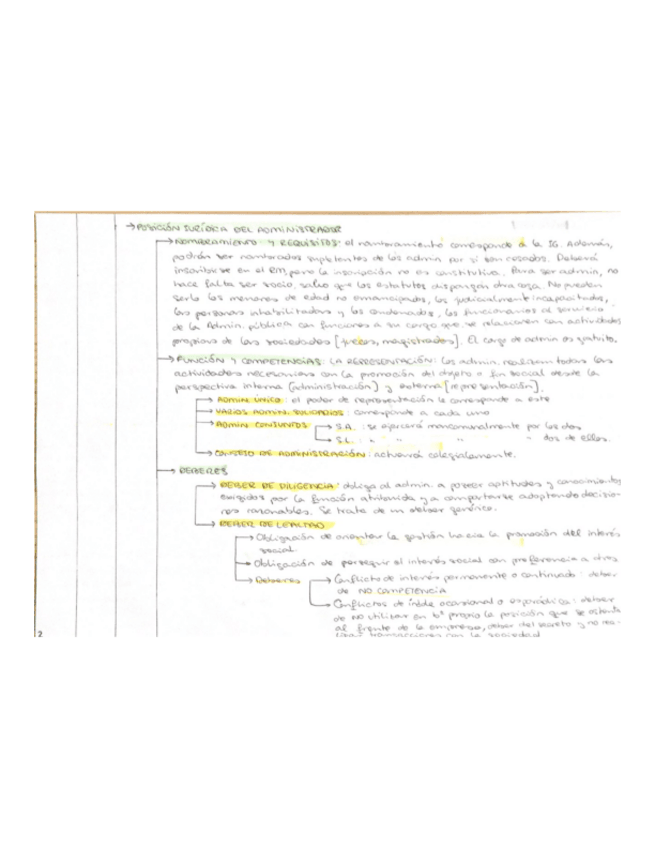 → POSICIÓN JURÍDICA DEL ADMINISTRADOR
→ NOMBRAMIENTO Y REQUISITOS: el nombramiento corresponde a la JG. Además,
podrán ser nombrados suplentes de los admin por si son cesados. Deberá
inscribirse en el RM, pero la inscripción no es constitutiva. Para ser admin, no
hace falta ser socio, salvo que los estatutos dispongan otra cosa. No pueden
serlo los menores de edad no emancipados, los judicialmente incapacitados,
las personas inhabilitadas y los condenados, los funcionarios al servicio
de la Admin. pública con funciones a su cargo que se relacionen con actividades
propias de las sociedades [jueces, magistrados]. El cargo de admin es gratuito.
→ FUNCIÓN Y COMPETENCIAS: LA REPRESENTACIÓN: los admin. realizan todas las
actividades necesarias con la promoción del objeto o fin social desde la
perspectiva interna [administración] y externa [representación].
→ ADMIN ÚNICO: el poder de representación le corresponde a este
→ VARIOS ADMIN. SOLIDARIOS: corresponde a cada uno
→ ADMIN CONJUNTOS → S.A.: se ejercerá mancomunadamente por los dos
→ S.L.: " " " " dos de ellos.
→ CONSEJO DE ADMINISTRACIÓN: actuará colegialmente.
→ DEBERES
→ DEBER DE DILIGENCIA: obliga al admin. a poseer aptitudes y conocimientos
exigidos por la función atribuida y a comportarse adoptando decisio-
nes razonables. Se trata de un deber genérico.
→ DEBER DE LEALTAD
→ Obligación de orientar la gestión hacia la promoción del interés
social.
→ Obligación de perseguir el interés social con preferencia a otros
→ Deberes → Conflicto de interés permanente o continuado: deber
de NO COMPETENCIA
→ Conflictos de índole ocasional o esporádica: deber
de NO utilizar en bº propio la posición que se ostenta
al frente de la empresa, deber del secreto y no rea-
lizar transacciones con la sociedad
2